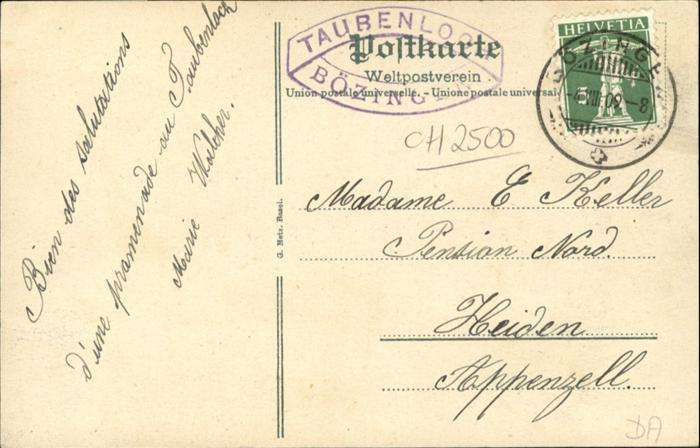 Bien des salutations
d'une pramenade au Taubenloch
Marie Walcher.
TAUBENLOCH
BÖZINGEN
Postkarte
Weltpostverein
Union postale universelle. - Unione postale universale
HELVETIA
5
BÖZINGEN
VIII 09 - 8
CH 2500
G. Metz, Basel.
Madame E Keller
Pension Nord.
Heiden
Appenzell.
DA